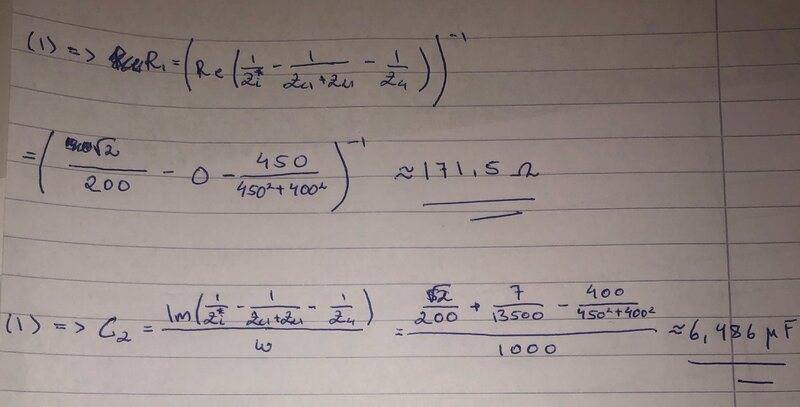 (1) => R₁ = (Re(1/Zi* - 1/(Z4+Z4) - 1/Z4))⁻¹
= (√2/200 - 0 - 450/(450²+400²))⁻¹ ≈ 171,5 Ω
(1) => C₂ = Im(1/Zi* - 1/(Z4+Z4) - 1/Z4)/ω = (√2/200 + 7/13500 - 400/(450²+400²))/1000 ≈ 6,486 μF